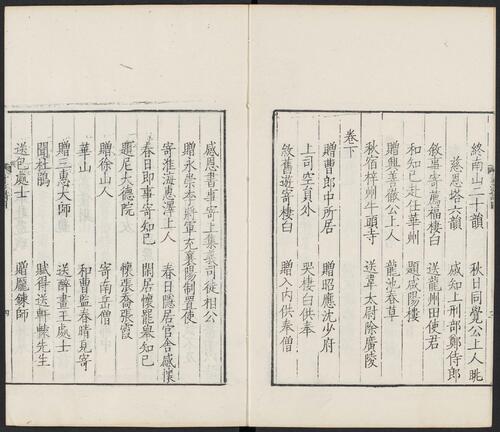 終南山二十韻　秋日同覺公上人眺
慈恩塔六韻　感知上刑部鄭侍郎
敘事寄薦福棲白　送龍州田使君
和知己赴任華州　題咸陽樓
贈興善徹公上人　龍池春草
秋宿梓州牛頭寺　送韋太尉除廣陵
卷下
贈曹郎中所居　贈昭應沈少府
上司空員外　哭棲白供奉
敘舊遊寄棲白　贈入內供奉僧
感恩書事寄上集義司徒相公
贈永崇李將軍充襄陽制置使
寄淮海惠澤上人　春日隱居官舍感懷
春日即事寄知己　閑居懷罷舉知己
題尼大德院　懷張喬張霞
贈徐山人　寄南岳僧
華山　和曹監春晴見寄
贈三惠大師　送醉畫王處士
聞杜鵑　賦得送軒轅先生
送包處士　贈龐鍊師